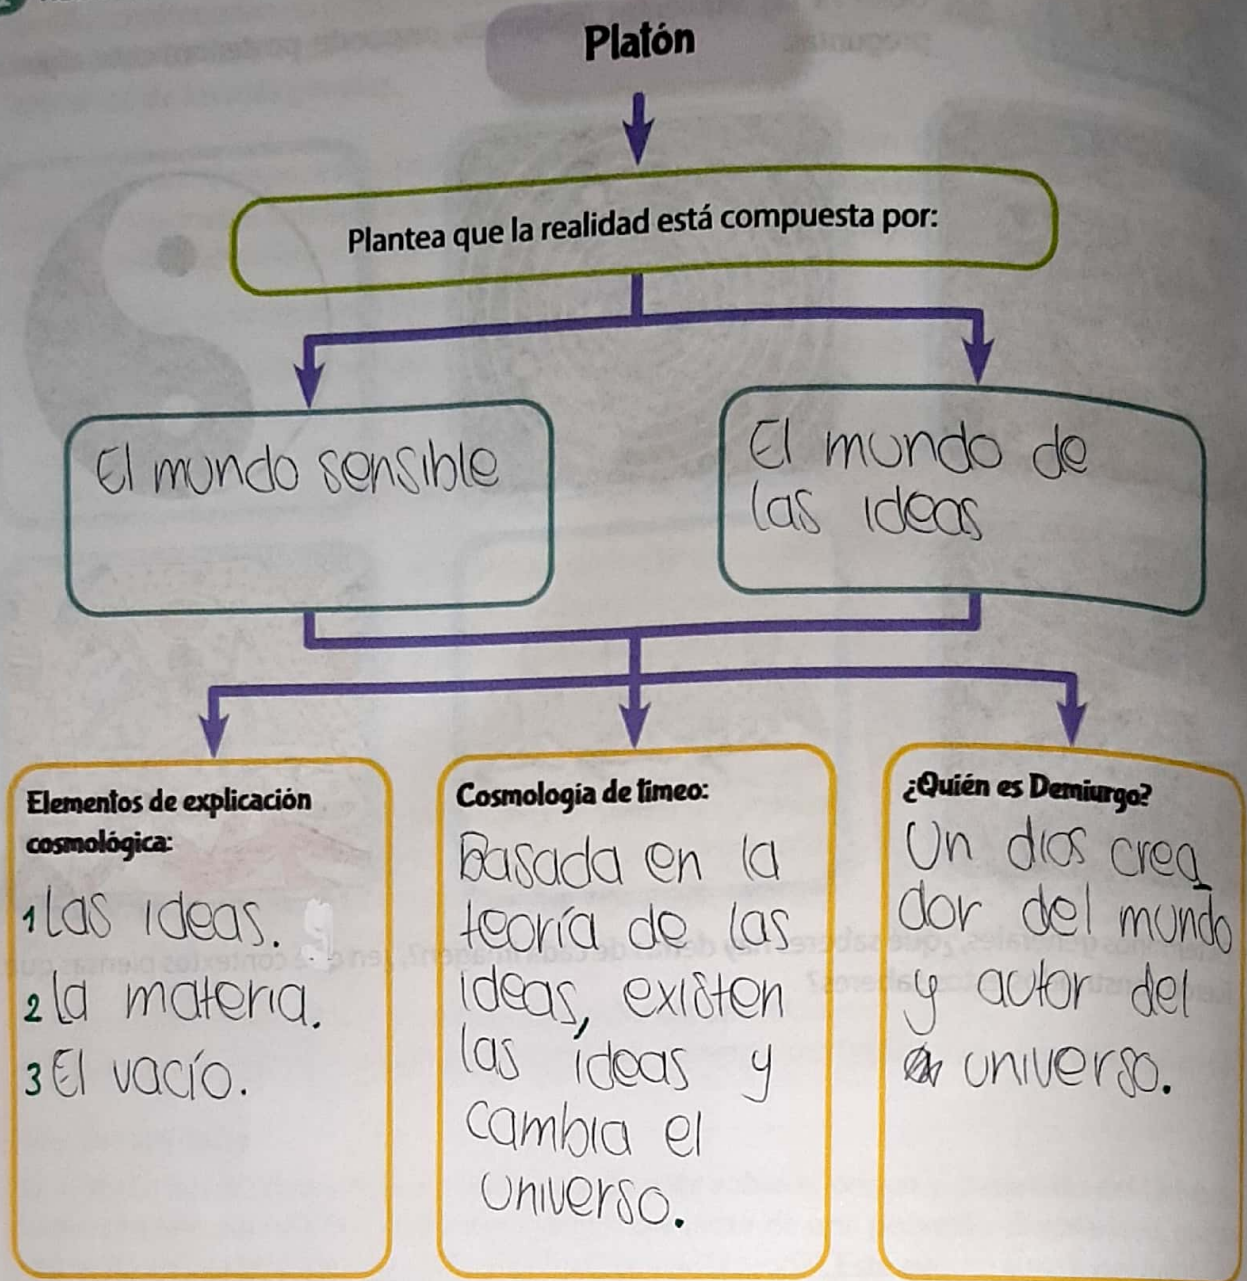 Platón
Plantea que la realidad está compuesta por:
El mundo sensible
El mundo de
las ideas
Elementos de explicación
cosmológica:
1 las ideas.
2 la materia.
3 El vacío.
Cosmología de timeo:
Basada en la
teoría de las
ideas, existen
las ideas y
cambia el
Universo.
¿Quién es Demiurgo?
Un dios crea
dor del mundo
y autor del
universo.